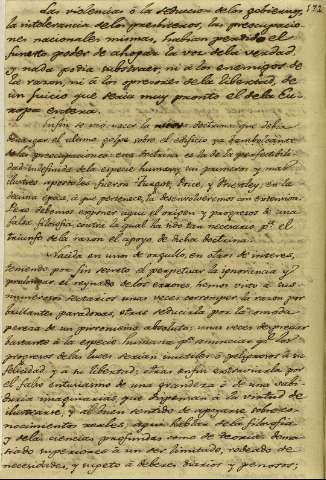 172
Las violencias ó la seduccion de los gobiernos,
la intolerancia de los presbiteros, las preocupacio-
nes nacionales mismas, habian perdido el
funesto poder de ahogar la voz de la verdad,
y nada podia substraer, ni á los enemigos de
la razon, ni á los opresores de la libertad, de
un juicio que seria muy pronto el de la Eu-
ropa entera.
En fin se vió nacer la doctrina que debia
descargar el ultimo golpe sobre el edificio ya bamboleante
de las preocupaciones: esta doctrina es la de la perfectibili-
dad indefinida de la especie humana, cuyos primeros y mas
ilustres apostoles fueron Turgot, Price, y Priestley; en la
decima epoca, á que pertenece, la desenvolveremos con extension.
Pero debemos exponer aqui el origen y progresos de una
falsa filosofia, contra la qual ha sido tan necesario pa. el
triunfo de la razon el apoyo de dicha doctrina.
Nacida en unos de orgullo, en otros de interes,
teniendo por fin secreto el perpetuar la ignorancia y
prolongar el reynado de los errores, hemos visto á sus
numerosos sectarios unas veces corromper la razon por
brillantes paradoxas, ó seducirla por la comoda
pereza de un pirronismo absoluto; unas veces despreciar
bastante á la especie humana pa. anunciar que los
progresos de las luces serian inutiles ó peligrosos á su
felicidad y á su libertad; otras en fin extraviarla por
el falso entusiasmo de una grandeza ó de una sabi-
duria imaginarias, que dispensan á la virtud de
ilustrarse, y al buen sentido de apoyarse sobre co-
nocimientos reales; aqui hablar de la filosofia
y de las ciencias profundas como de teorias dema-
siado superiores á un ser limitado, rodeado de
necesidades, y sujeto á deberes diarios y penosos;